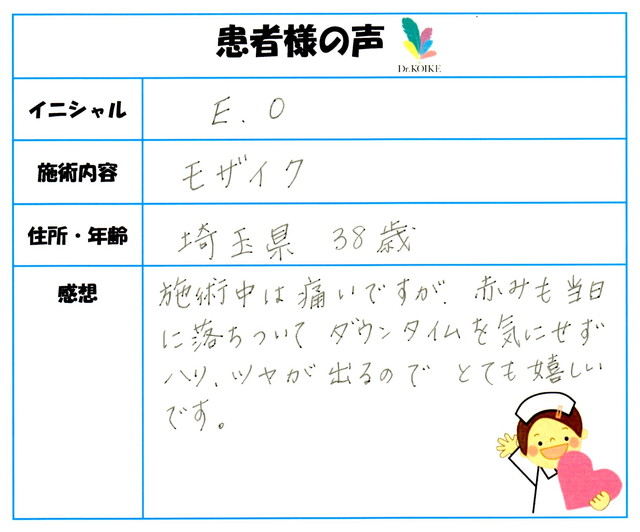 患者様の声
Dr.KOIKE
イニシャル E.O
施術内容 モザイク
住所・年齢 埼玉県 38歳
感想 施術中は痛いですが、赤みも当日
に落ちついて ダウンタイムを気にせず
ハリ、ツヤが出るので とても嬉しい
です。